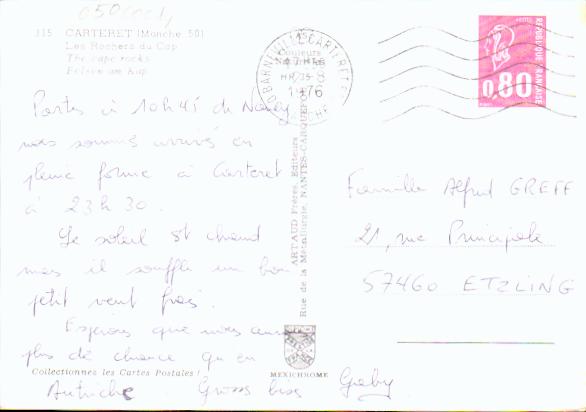 050001,
115 CARTERET (Manche 50)
Les Rochers du Cap
The cape rocks
Felsen am Kap
Partis à 10h45 de Nancy
nous sommes arrivés en
pleine forme à Carteret
à 23 h 30.
Le soleil est chaud
mais il souffle un bon
petit vent frais.
Espérons que nous aurons
plus de chance qu'en
Autriche. Gross bise Gaby
Collectionnez les Cartes Postales!
ARTAUD Frères, Éditeurs
Rue de la Métallurgie, NANTES-CARQUEFOU
MEXICHROME
BARNEVILLE-CARTERET
1976
MANCHE
REPUBLIQUE FRANÇAISE
0,80
Famille Alfred GREFF
21, rue Principale
57460 ETZLING